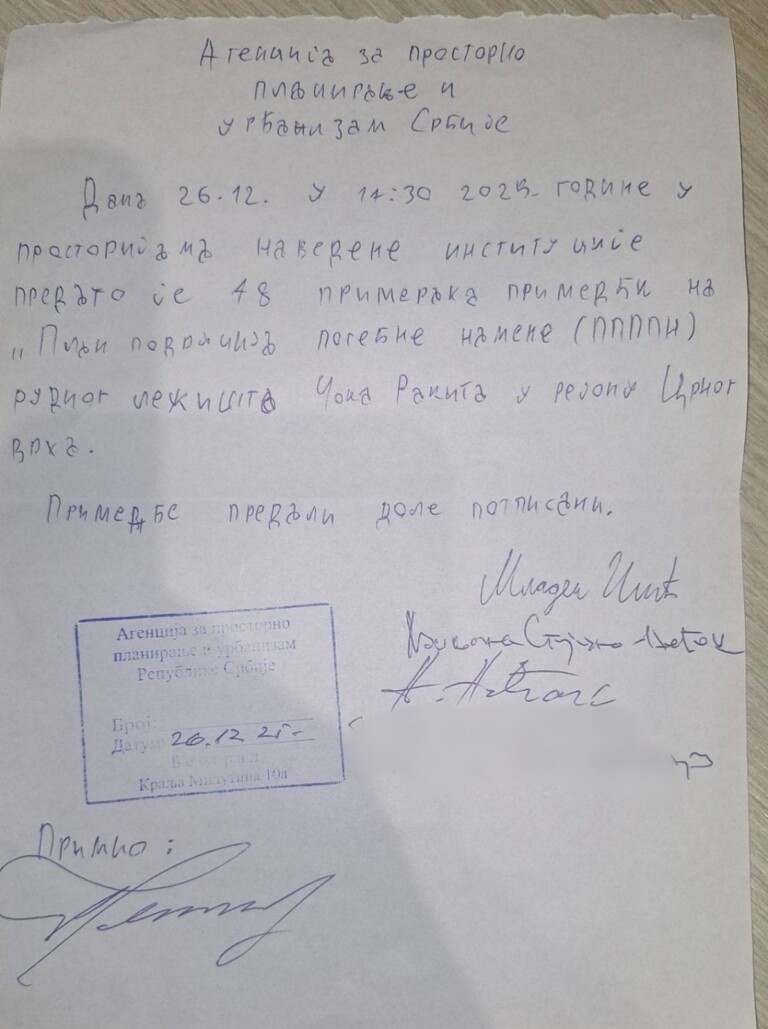 Агенција за просторно
планирање и
урбанизам Србије
Дана 26.12. у 14:30 2025. године у
просторијама наведене институције
предато је 48 примерака примедби на
„План подручија посебне намене (ПППНН)
рудног лежишта Чока Ракита у рејону Црног
врха.
Примедбе предали доле потписани.
Младен
Агенција за просторно
планирање и урбанизам
Републике Србије
Број:
Датум: 26.12 25.
Београд
Краља Милутина 10а
Примио: